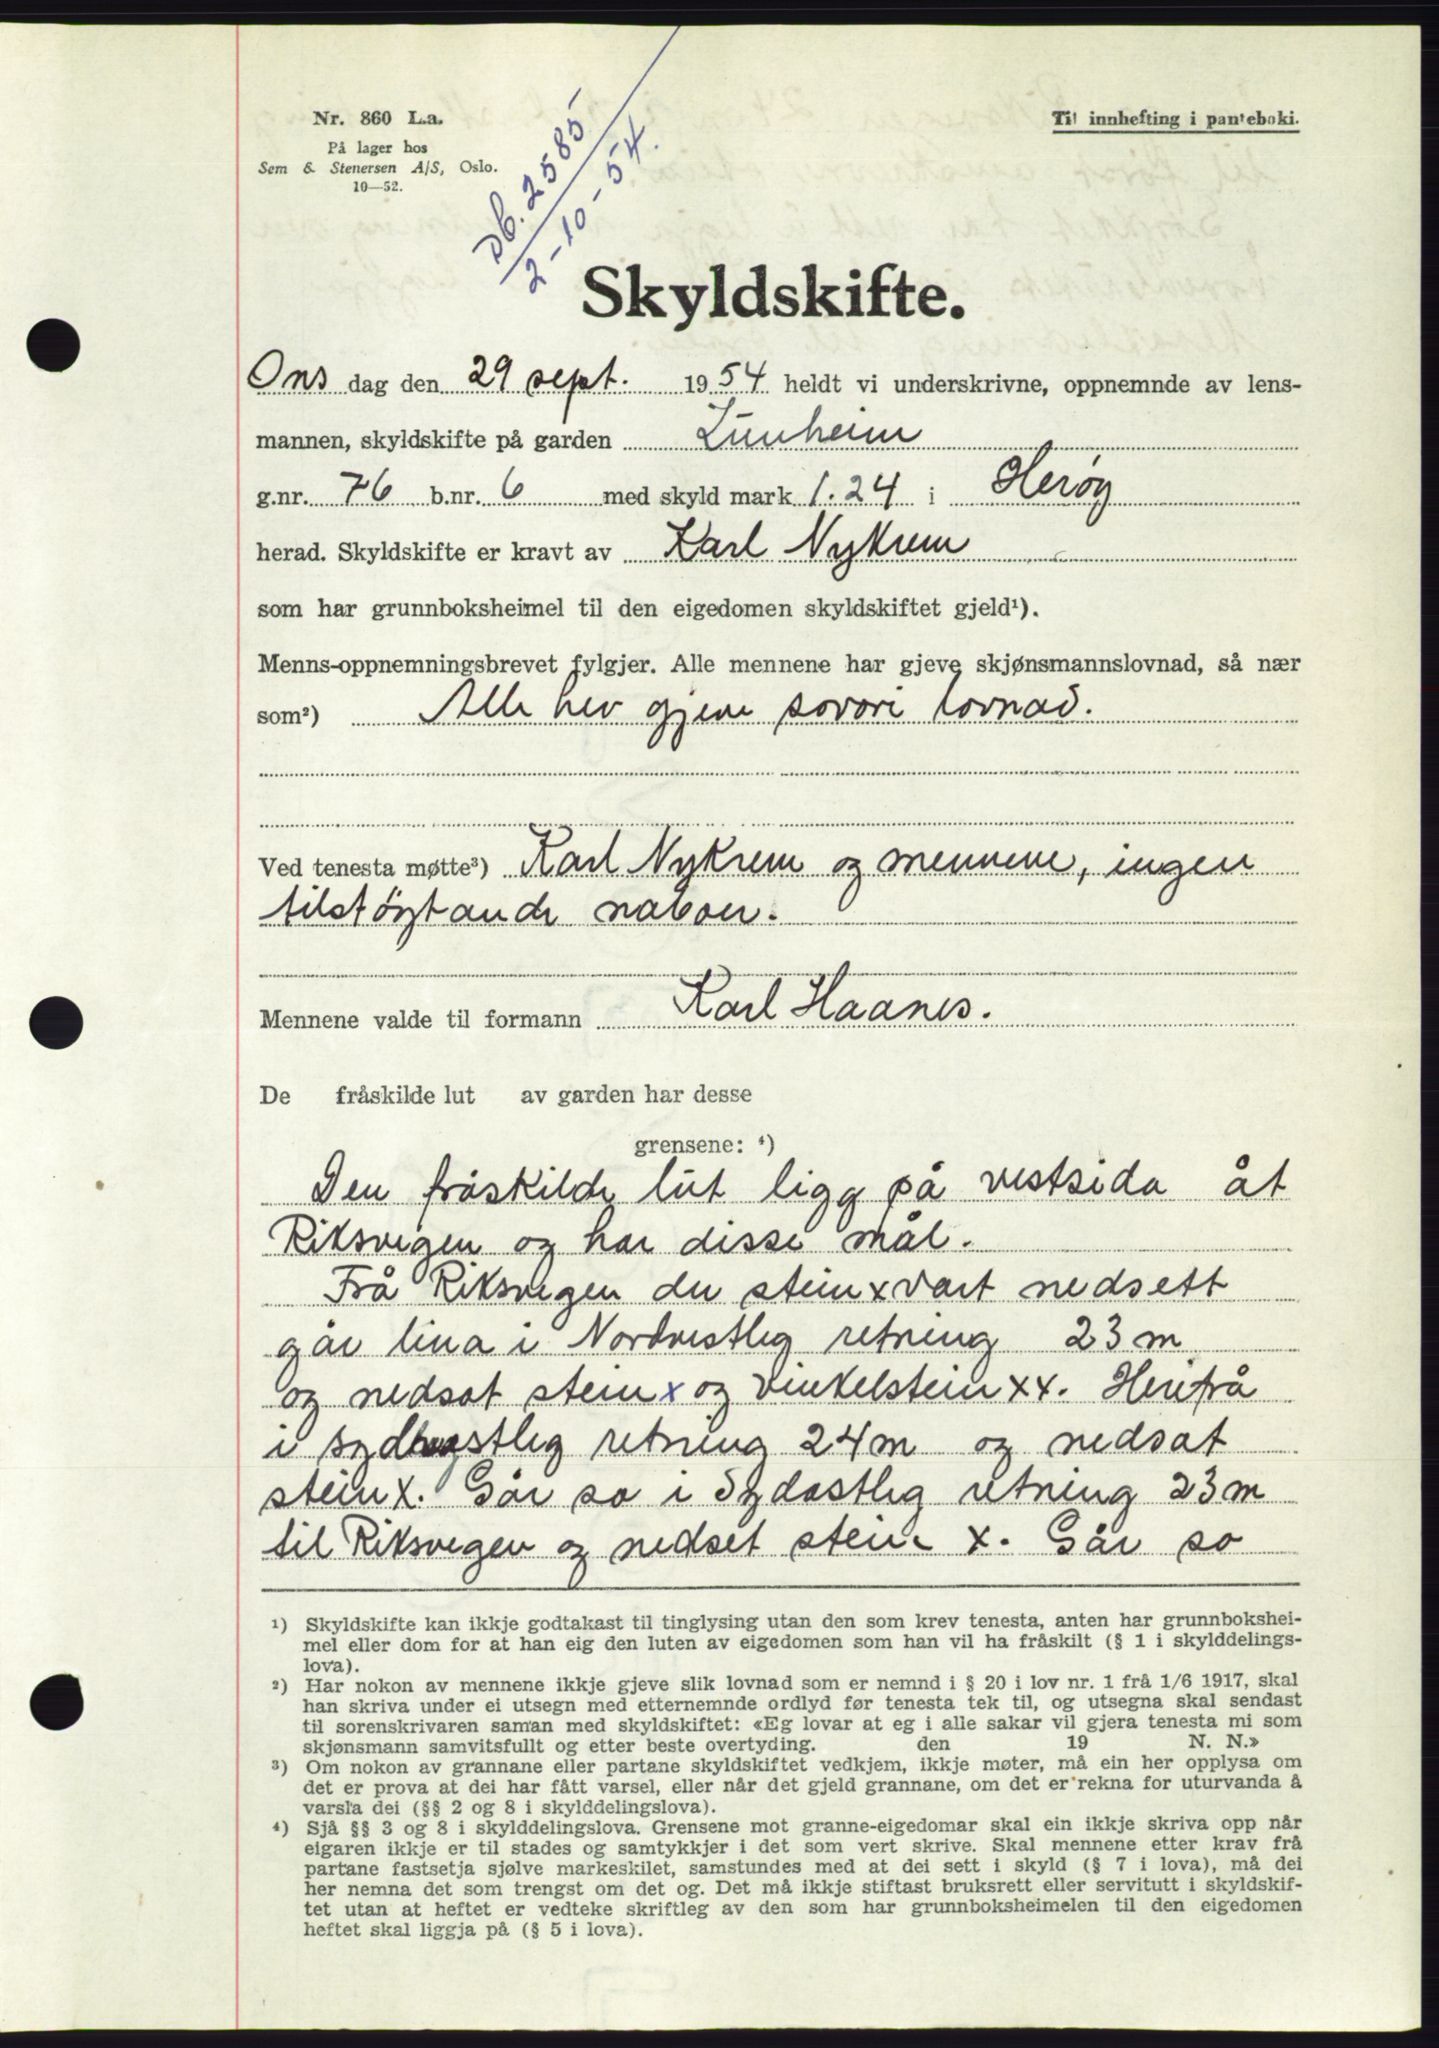 Nr. 860 L.a.
På lager hos
Sem & Stenersen A/S, Oslo.
10—52.
Til innhefting i panteboki.
Db. 2585
2-10-54.
Skyldskifte.
Ons dag den 29 sept. 1954 heldt vi underskrivne, oppnemnde av lens-
mannen, skyldskifte på garden Lunheim
g.nr. 76 b.nr. 6 med skyld mark 1.24 i Herøy
herad. Skyldskifte er kravt av Karl Nykrem
som har grunnboksheimel til den eigedomen skyldskiftet gjeld¹).
Menns-oppnemningsbrevet fylgjer. Alle mennene har gjeve skjønsmannslovnad, så nær
som²) Alle hev gjeve sovori lovnad.
Ved tenesta møtte³) Karl Nykrem og mennene, ingen
tilstøytande naboer.
Mennene valde til formann Karl Haanes.
De fråskilde lut av garden har desse
grensene: ⁴)
Den fråskilde lut ligg på vestsida åt
Riksvegen og har disse mål.
Frå Riksvegen der stein x vart nedsett
går lina i Nordvestleg retning 23 m
og nedsat stein x og vinkelstein xx. Herifrå
i sydvestleg retning 24 m og nedsat
stein x. Går so i Sydøstleg retning 23 m
til Riksvegen og nedset stein x. Går so
¹) Skyldskifte kan ikkje godtakast til tinglysing utan den som krev tenesta, anten har grunnbokshei-
mel eller dom for at han eig den luten av eigedomen som han vil ha fråskilt (§ 1 i skylddelings-
lova).
²) Har nokon av mennene ikkje gjeve slik lovnad som er nemnd i § 20 i lov nr. 1 frå 1/6 1917, skal
han skriva under ei utsegn med etternemnde ordlyd før tenesta tek til, og utsegna skal sendast
til sorenskrivaren saman med skyldskiftet: «Eg lovar at eg i alle sakar vil gjera tenesta mi som
skjønsmann samvitsfullt og etter beste overtyding. den 19 N. N.»
³) Om nokon av grannane eller partane skyldskiftet vedkjem, ikkje møter, må ein her opplysa om
det er prova at dei har fått varsel, eller når det gjeld grannane, om det er rekna for uturvanda å
varsla dei (§§ 2 og 8 i skylddelingslova).
⁴) Sjå §§ 3 og 8 i skylddelingslova. Grensene mot granne-eigedomar skal ein ikkje skriva opp når
eigaren ikkje er til stades og samtykkjer i det som vert skrive. Skal mennene etter krav frå
partane fastsetja sjølve markeskilet, samstundes med at dei sett i skyld (§ 7 i lova), må dei
her nemna det som trengst om det og. Det må ikkje stiftast bruksrett eller servitutt i skyldskif-
tet utan at heftet er vedteke skriftleg av den som har grunnboksheimelen til den eigedomen
heftet skal liggja på (§ 5 i lova).